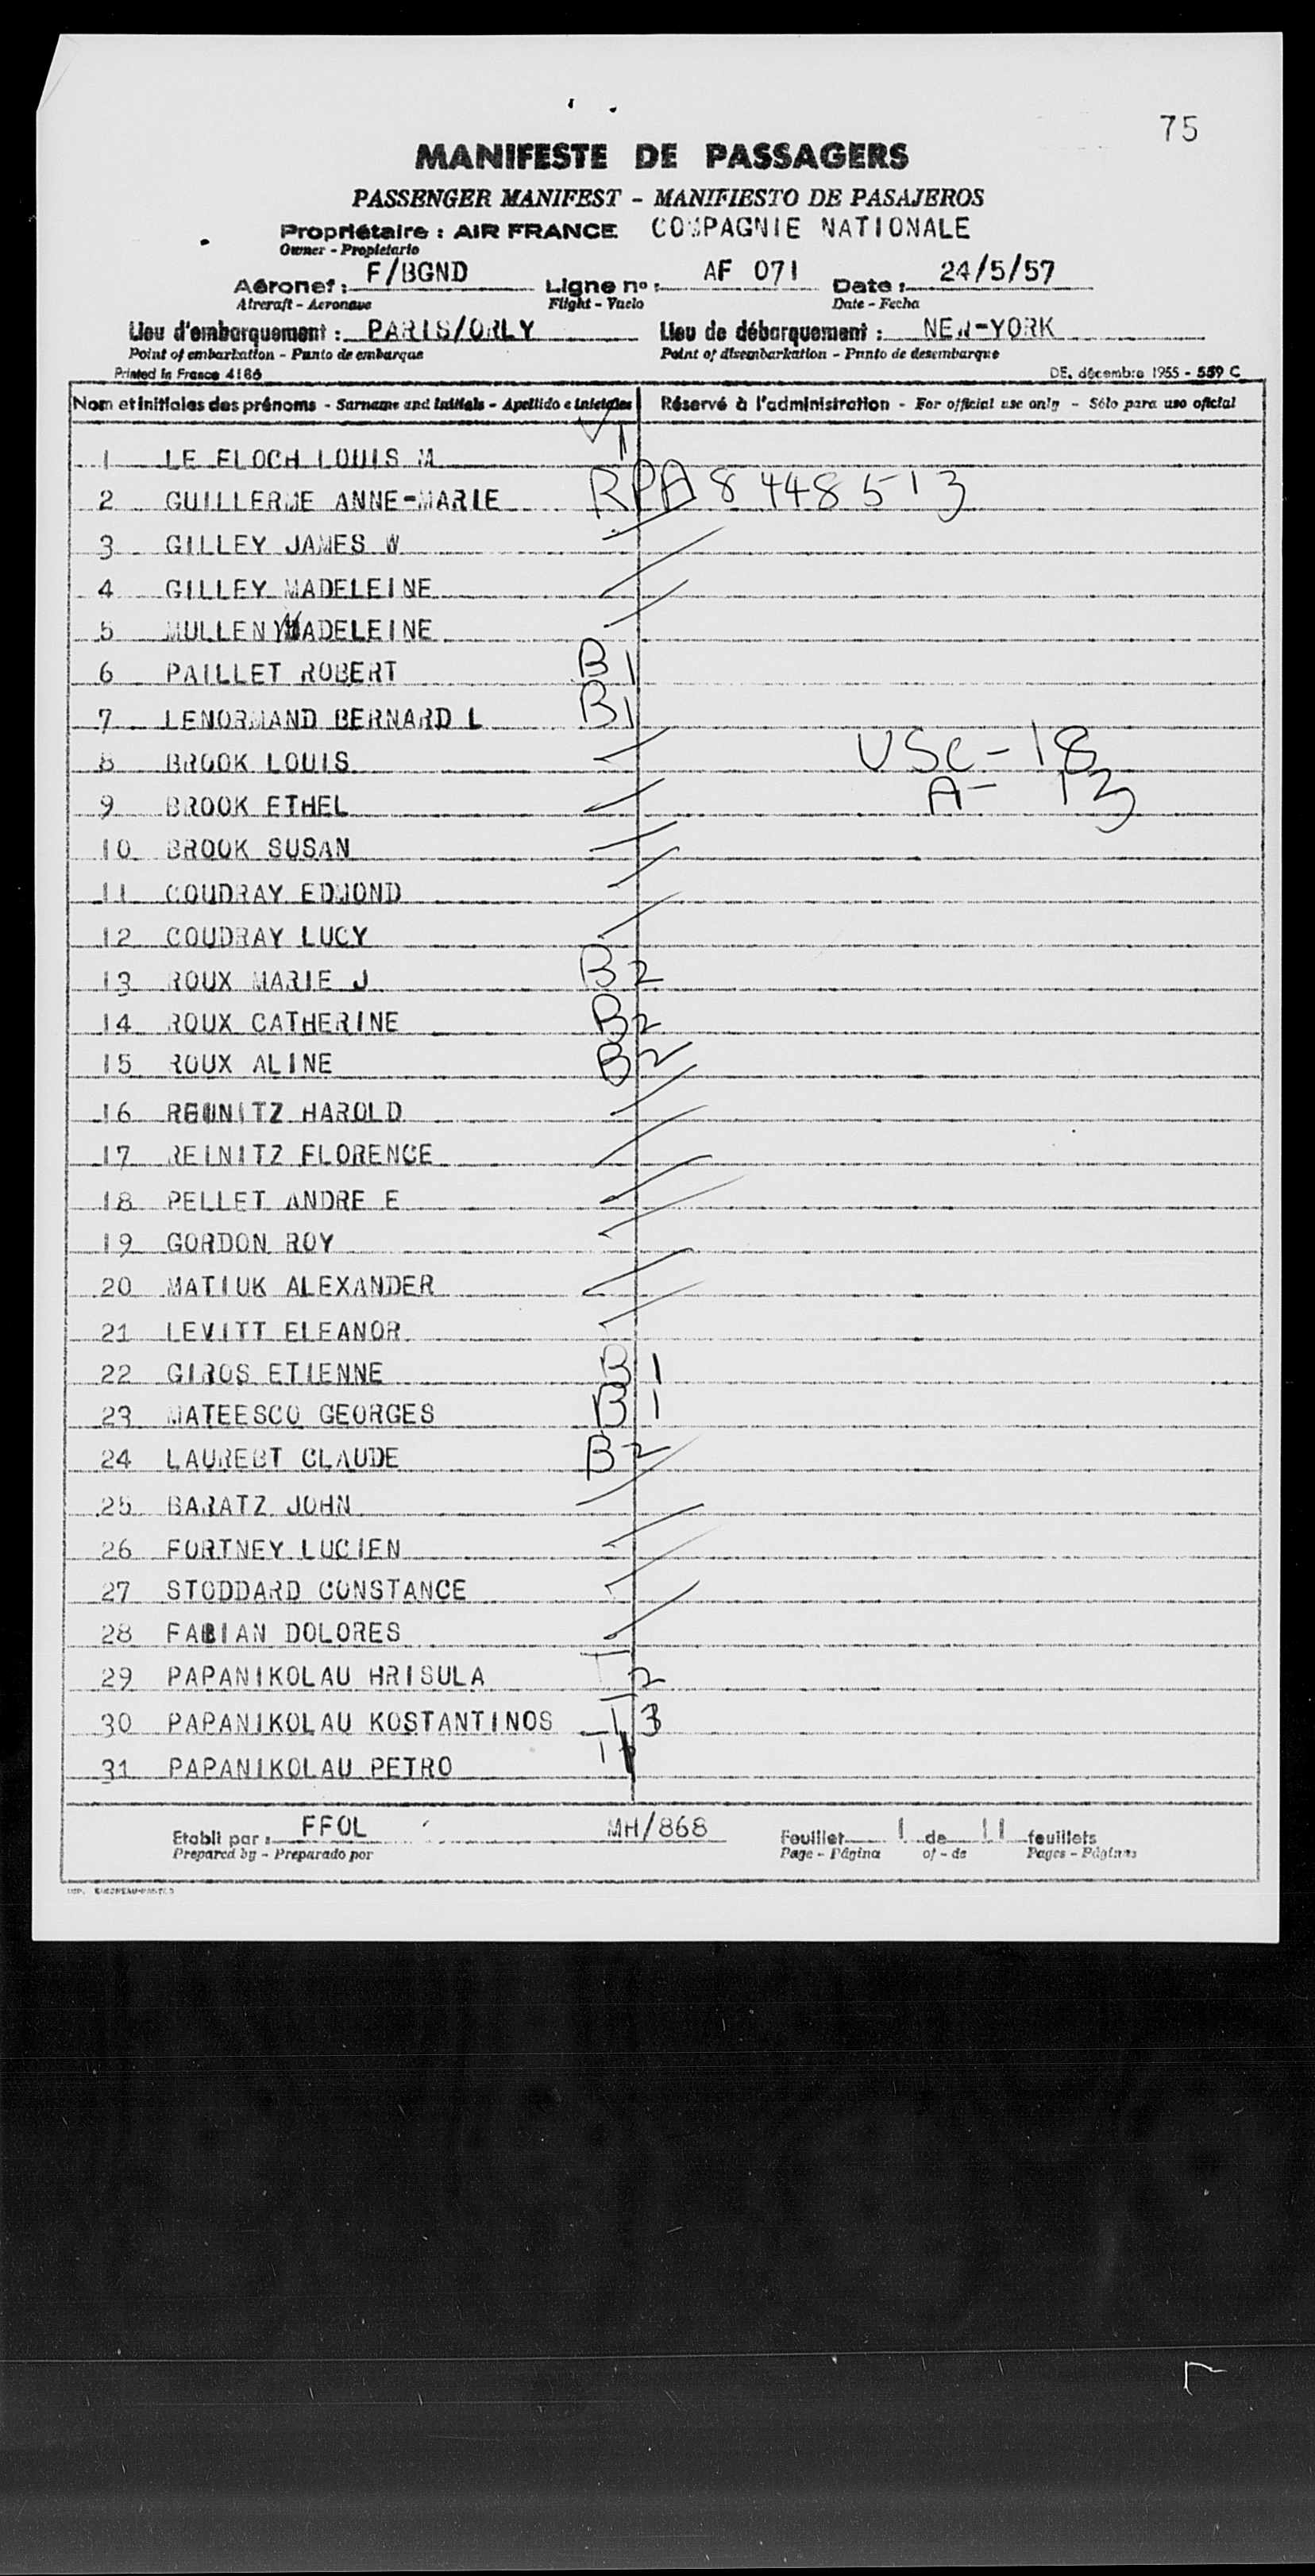 75
MANIFESTE DE PASSAGERS
PASSENGER MANIFEST - MANIFIESTO DE PASAJEROS
Propriétaire : AIR FRANCE COMPAGNIE NATIONALE
Owner - Propietario
Aéronef : F/BGND Ligne nº : AF 071 Date : 24/5/57
Aircraft - Aeronave Flight - Vuelo Date - Fecha
Lieu d'embarquement : PARIS/ORLY Lieu de débarquement : NEW-YORK
Point of embarkation - Punto de embarque Point of disembarkation - Punto de desembarque
Printed in France 4186 DE. décembre 1955 - 559 C
Nom et initiales des prénoms - Surname and initials - Apellido e iniciales Réservé à l'administration - For official use only - Sólo para uso oficial
1 LE FLOCH LOUIS M
2 GUILLERME ANNE-MARIE RPA 8448513
3 GILLEY JAMES W
4 GILLEY MADELEINE
5 MULLEN MADELEINE
6 PAILLET ROBERT B1
7 LENORMAND BERNARD L B1
8 BROOK LOUIS USC-18
9 BROOK ETHEL A- 13
10 BROOK SUSAN
11 COUDRAY EDMOND
12 COUDRAY LUCY
13 ROUX MARIE J B2
14 ROUX CATHERINE B2
15 ROUX ALINE B2
16 REINITZ HAROLD
17 REINITZ FLORENCE
18 PELLET ANDRE E
19 GORDON ROY
20 MATIUK ALEXANDER
21 LEVITT ELEANOR
22 GIROS ETIENNE B1
23 MATEESCO GEORGES B1
24 LAUREBT CLAUDE B2
25 BARATZ JOHN
26 FORTNEY LUCIEN
27 STODDARD CONSTANCE
28 FABIAN DOLORES
29 PAPANIKOLAU HRISULA 2
30 PAPANIKOLAU KOSTANTINOS 3
31 PAPANIKOLAU PETRO
Etabli par : FFOL MH/868 Feuillet 1 de 11 feuillets
Prepared by - Preparado por Page - Página of - de Pages - Páginas